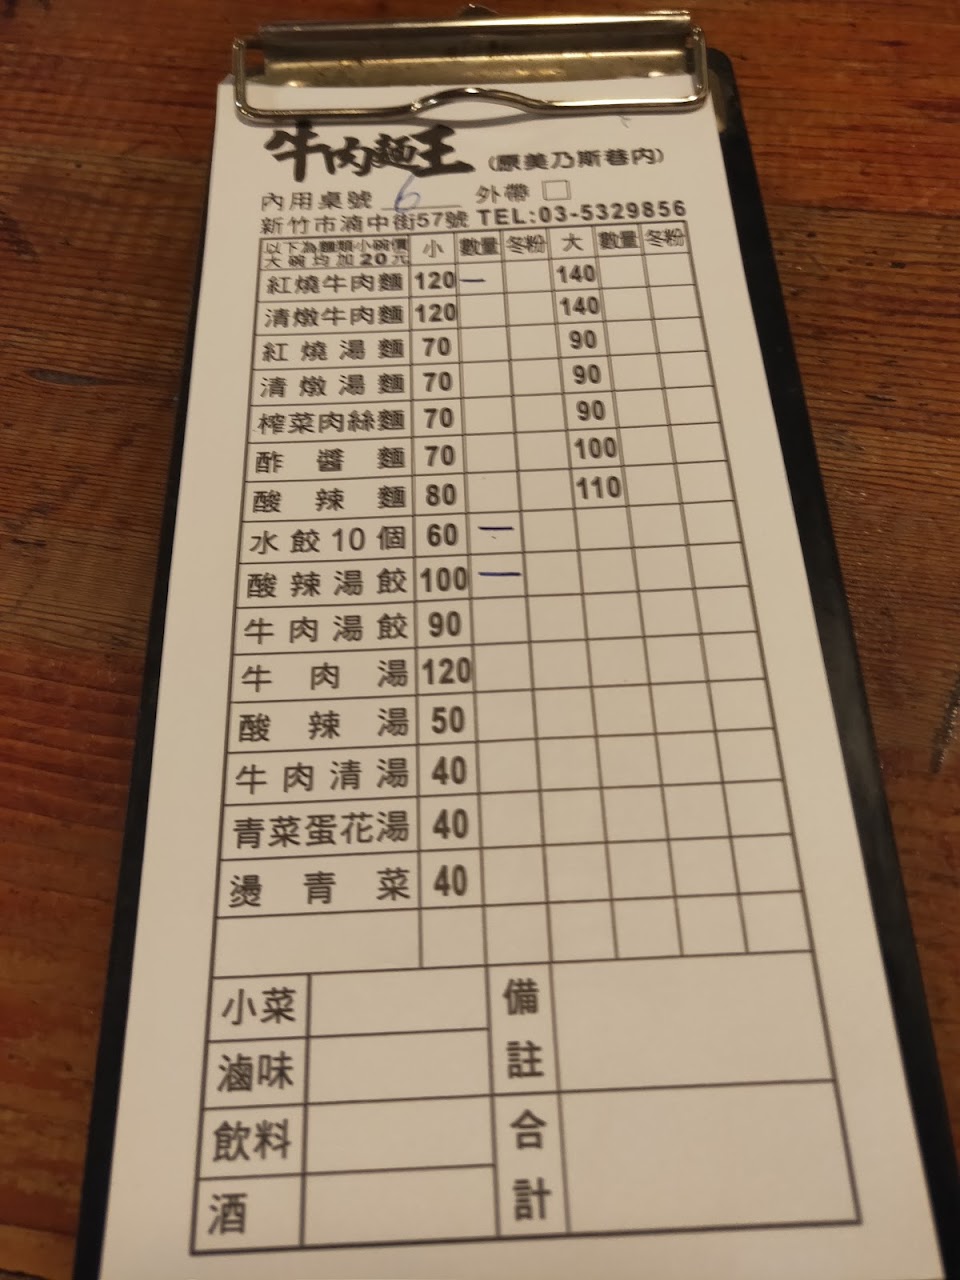 牛肉麵王 (原美乃斯巷內)
內用桌號 6 外帶 □
新竹市湳中街57號 TEL:03-5329856
以下為麵類小碗價 大碗均加20元 小 數量 冬粉 大 數量 冬粉
紅燒牛肉麵 120 一 140
清燉牛肉麵 120 140
紅燒湯麵 70 90
清燉湯麵 70 90
榨菜肉絲麵 70 90
酢醬麵 70 100
酸辣麵 80 110
水餃10個 60 一
酸辣湯餃 100 一
牛肉湯餃 90
牛肉湯 120
酸辣湯 50
牛肉清湯 40
青菜蛋花湯 40
燙青菜 40
小菜 備註
滷味
飲料 合計
酒